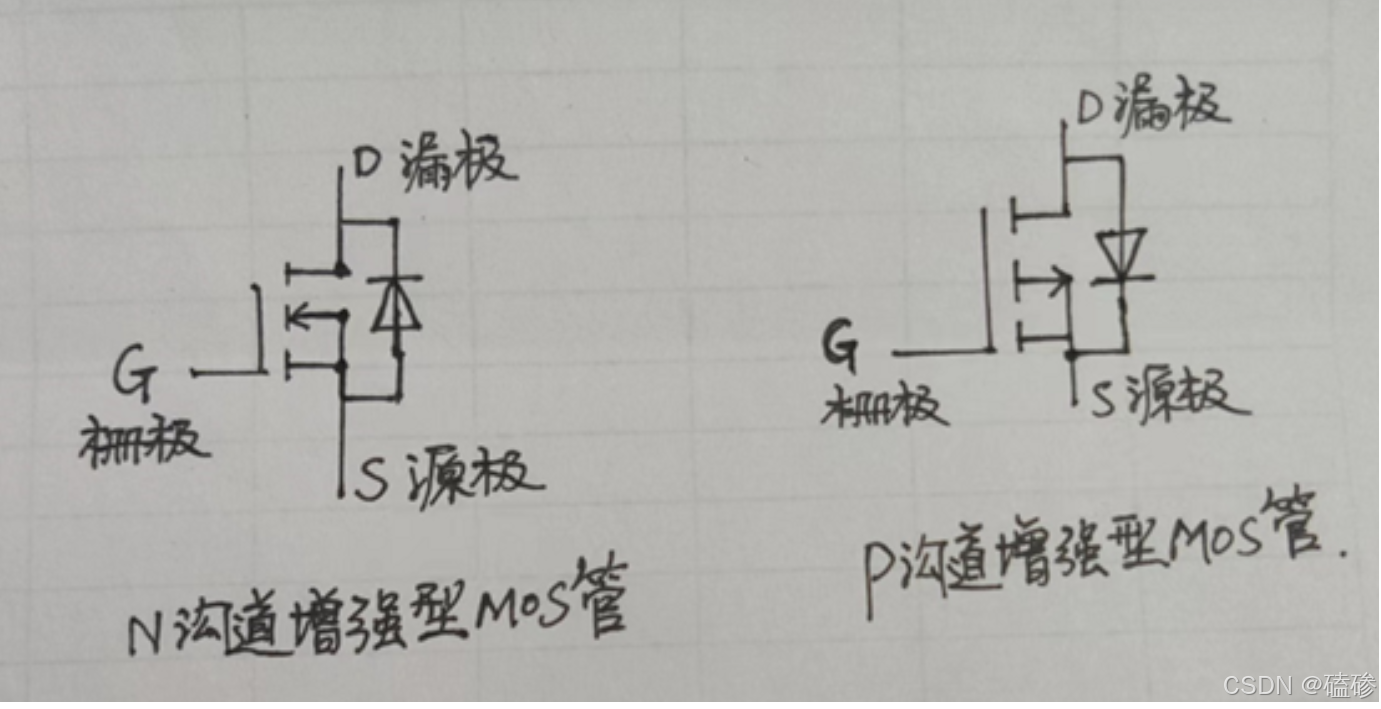 D 漏极
G
栅极
S 源极
N沟道增强型MOS管
D 漏极
G
栅极
S 源极
P沟道增强型MOS管.
CSDN @磕碜